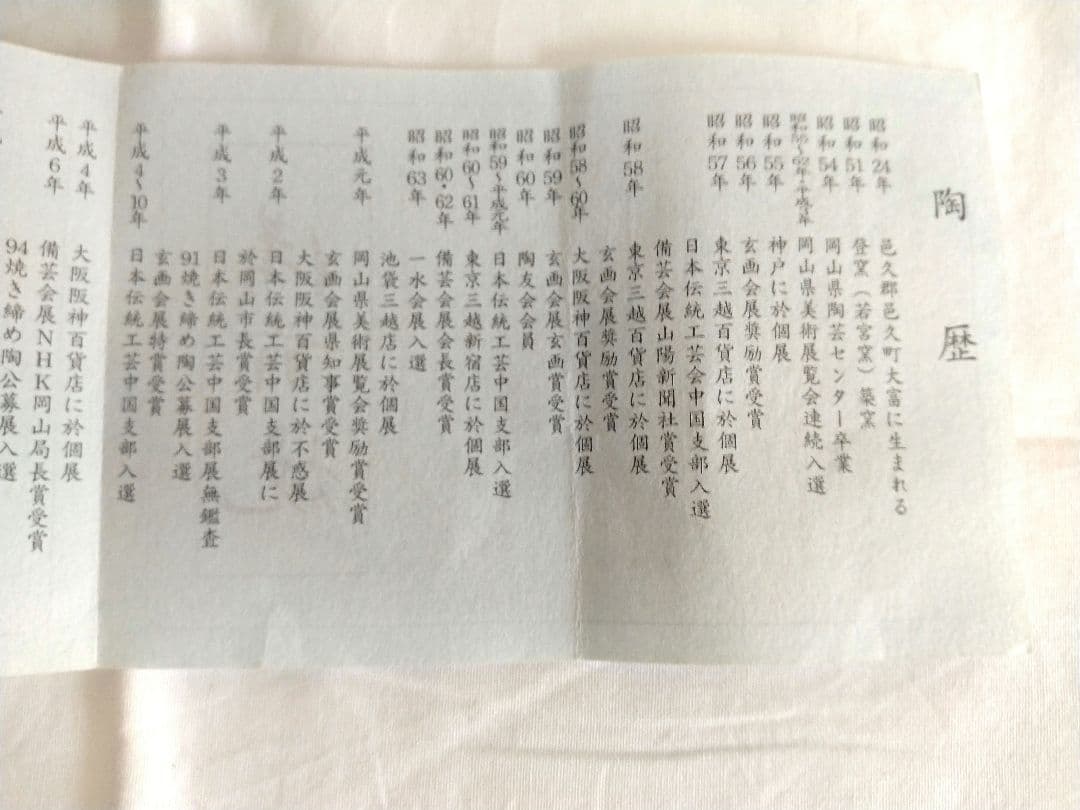 陶歴
昭和24年 邑久郡邑久町大富に生まれる
昭和51年 登窯（若宮窯）築窯
昭和54年 岡山県陶芸センター卒業
岡山県美術展覧会連続入選
昭和55年 神戸に於個展
昭和56年 玄画会展奨励賞受賞
昭和57年 東京三越百貨店に於個展
日本伝統工芸会中国支部入選
備芸会展山陽新聞社賞受賞
昭和58年 東京三越百貨店に於個展
玄画会展奨励賞受賞
昭和58〜60年 大阪阪神百貨店に於個展
昭和59年 玄画会展玄画賞受賞
昭和60年 陶友会会員
昭和59〜平成元年 日本伝統工芸中国支部入選
昭和60〜61年 東京三越新宿店に於個展
昭和60・62年 備芸会展会長賞受賞
昭和63年 一水会展入選
池袋三越店に於個展
平成元年 岡山県美術展覧会奨励賞受賞
玄画会展県知事賞受賞
大阪阪神百貨店に於不惑展
平成2年 日本伝統工芸中国支部展に
於岡山市長賞受賞
平成3年 日本伝統工芸中国支部展無鑑査
91焼き締め陶公募展入選
玄画会展特賞受賞
平成4〜10年 日本伝統工芸中国支部入選
平成4年 大阪阪神百貨店に於個展
平成6年 備芸会展NHK岡山局長賞受賞
94焼き締め陶公募展入選